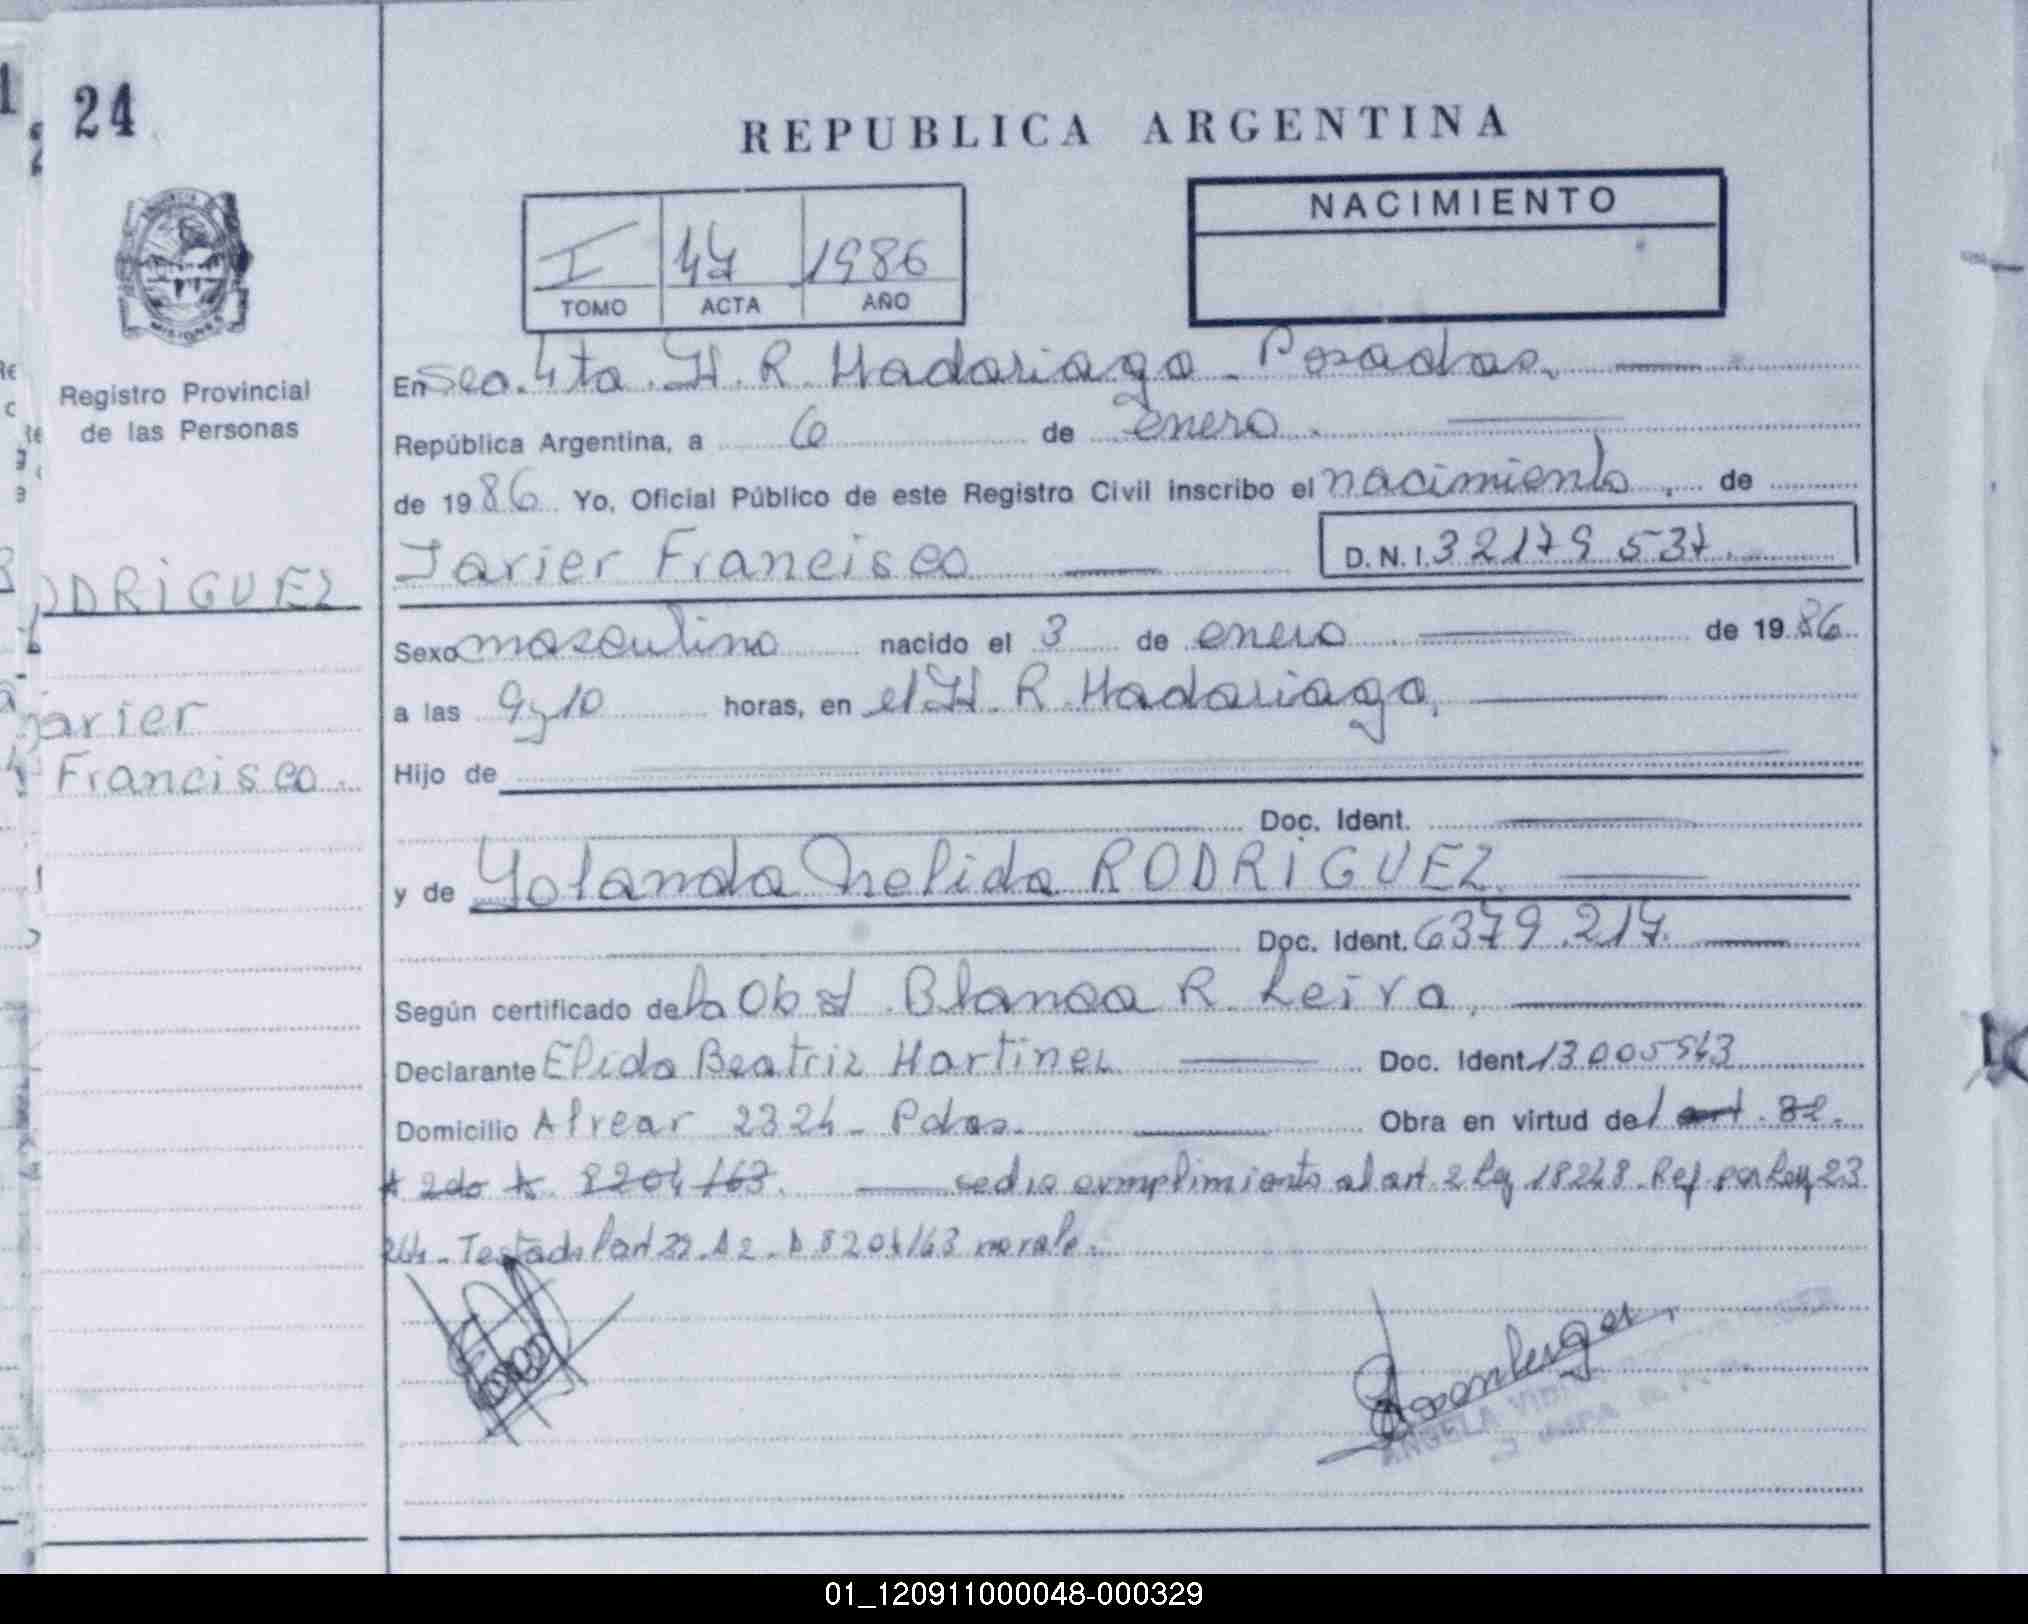 24
REPUBLICA ARGENTINA
NACIMIENTO
I 47 1986
TOMO ACTA AÑO
MISIONES
Registro Provincial
de las Personas
En Sec. 4ta. H. R. Madariaga - Posadas.
República Argentina, a 6 de enero
de 1986 Yo, Oficial Público de este Registro Civil inscribo el nacimiento, de
Javier Francisco D.N.I. 32179 537.
RODRIGUEZ
Sexo masculino nacido el 3 de enero de 1986
a las 9y10 horas, en el H. R. Madariaga,
Javier
Francisco.
Hijo de
Doc. Ident.
y de Yolanda Nelida RODRIGUEZ
Doc. Ident. 6379.217.
Según certificado de la Obst Blanca R. Leiva,
Declarante Elida Beatriz Martinez Doc. Ident. 13.005543
Domicilio Alvear 2324 - Pdas. Obra en virtud del art. 32.
A 2do A. 8204/63. se dio cumplimiento al art. 2 Ley 18248. Ref. por Ley 23
264 - Testado l art 32. A 2 - D 8204/63 no vale.
ANGELA
01_120911000048-000329